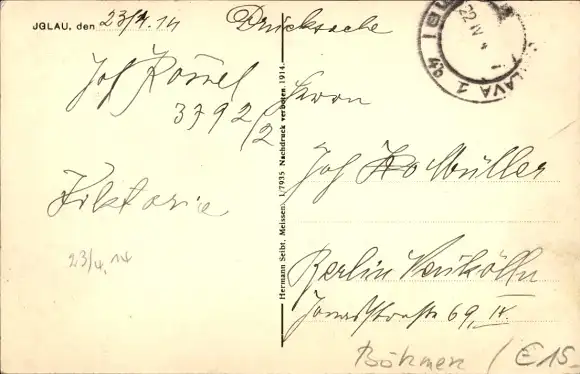 JGLAU, den 23/4.14
Drucksache
IGL LAVA 1
22 IV
Jos Rössel
3792/2
Herrn
Jos Müller
Viktoria
23/4.14
Berlin Neukölln
Jonasstrasse 69, IV.
Böhmen / E15.
Hermann Seibt, Meissen. 1/7935 Nachdruck verboten. 1914.